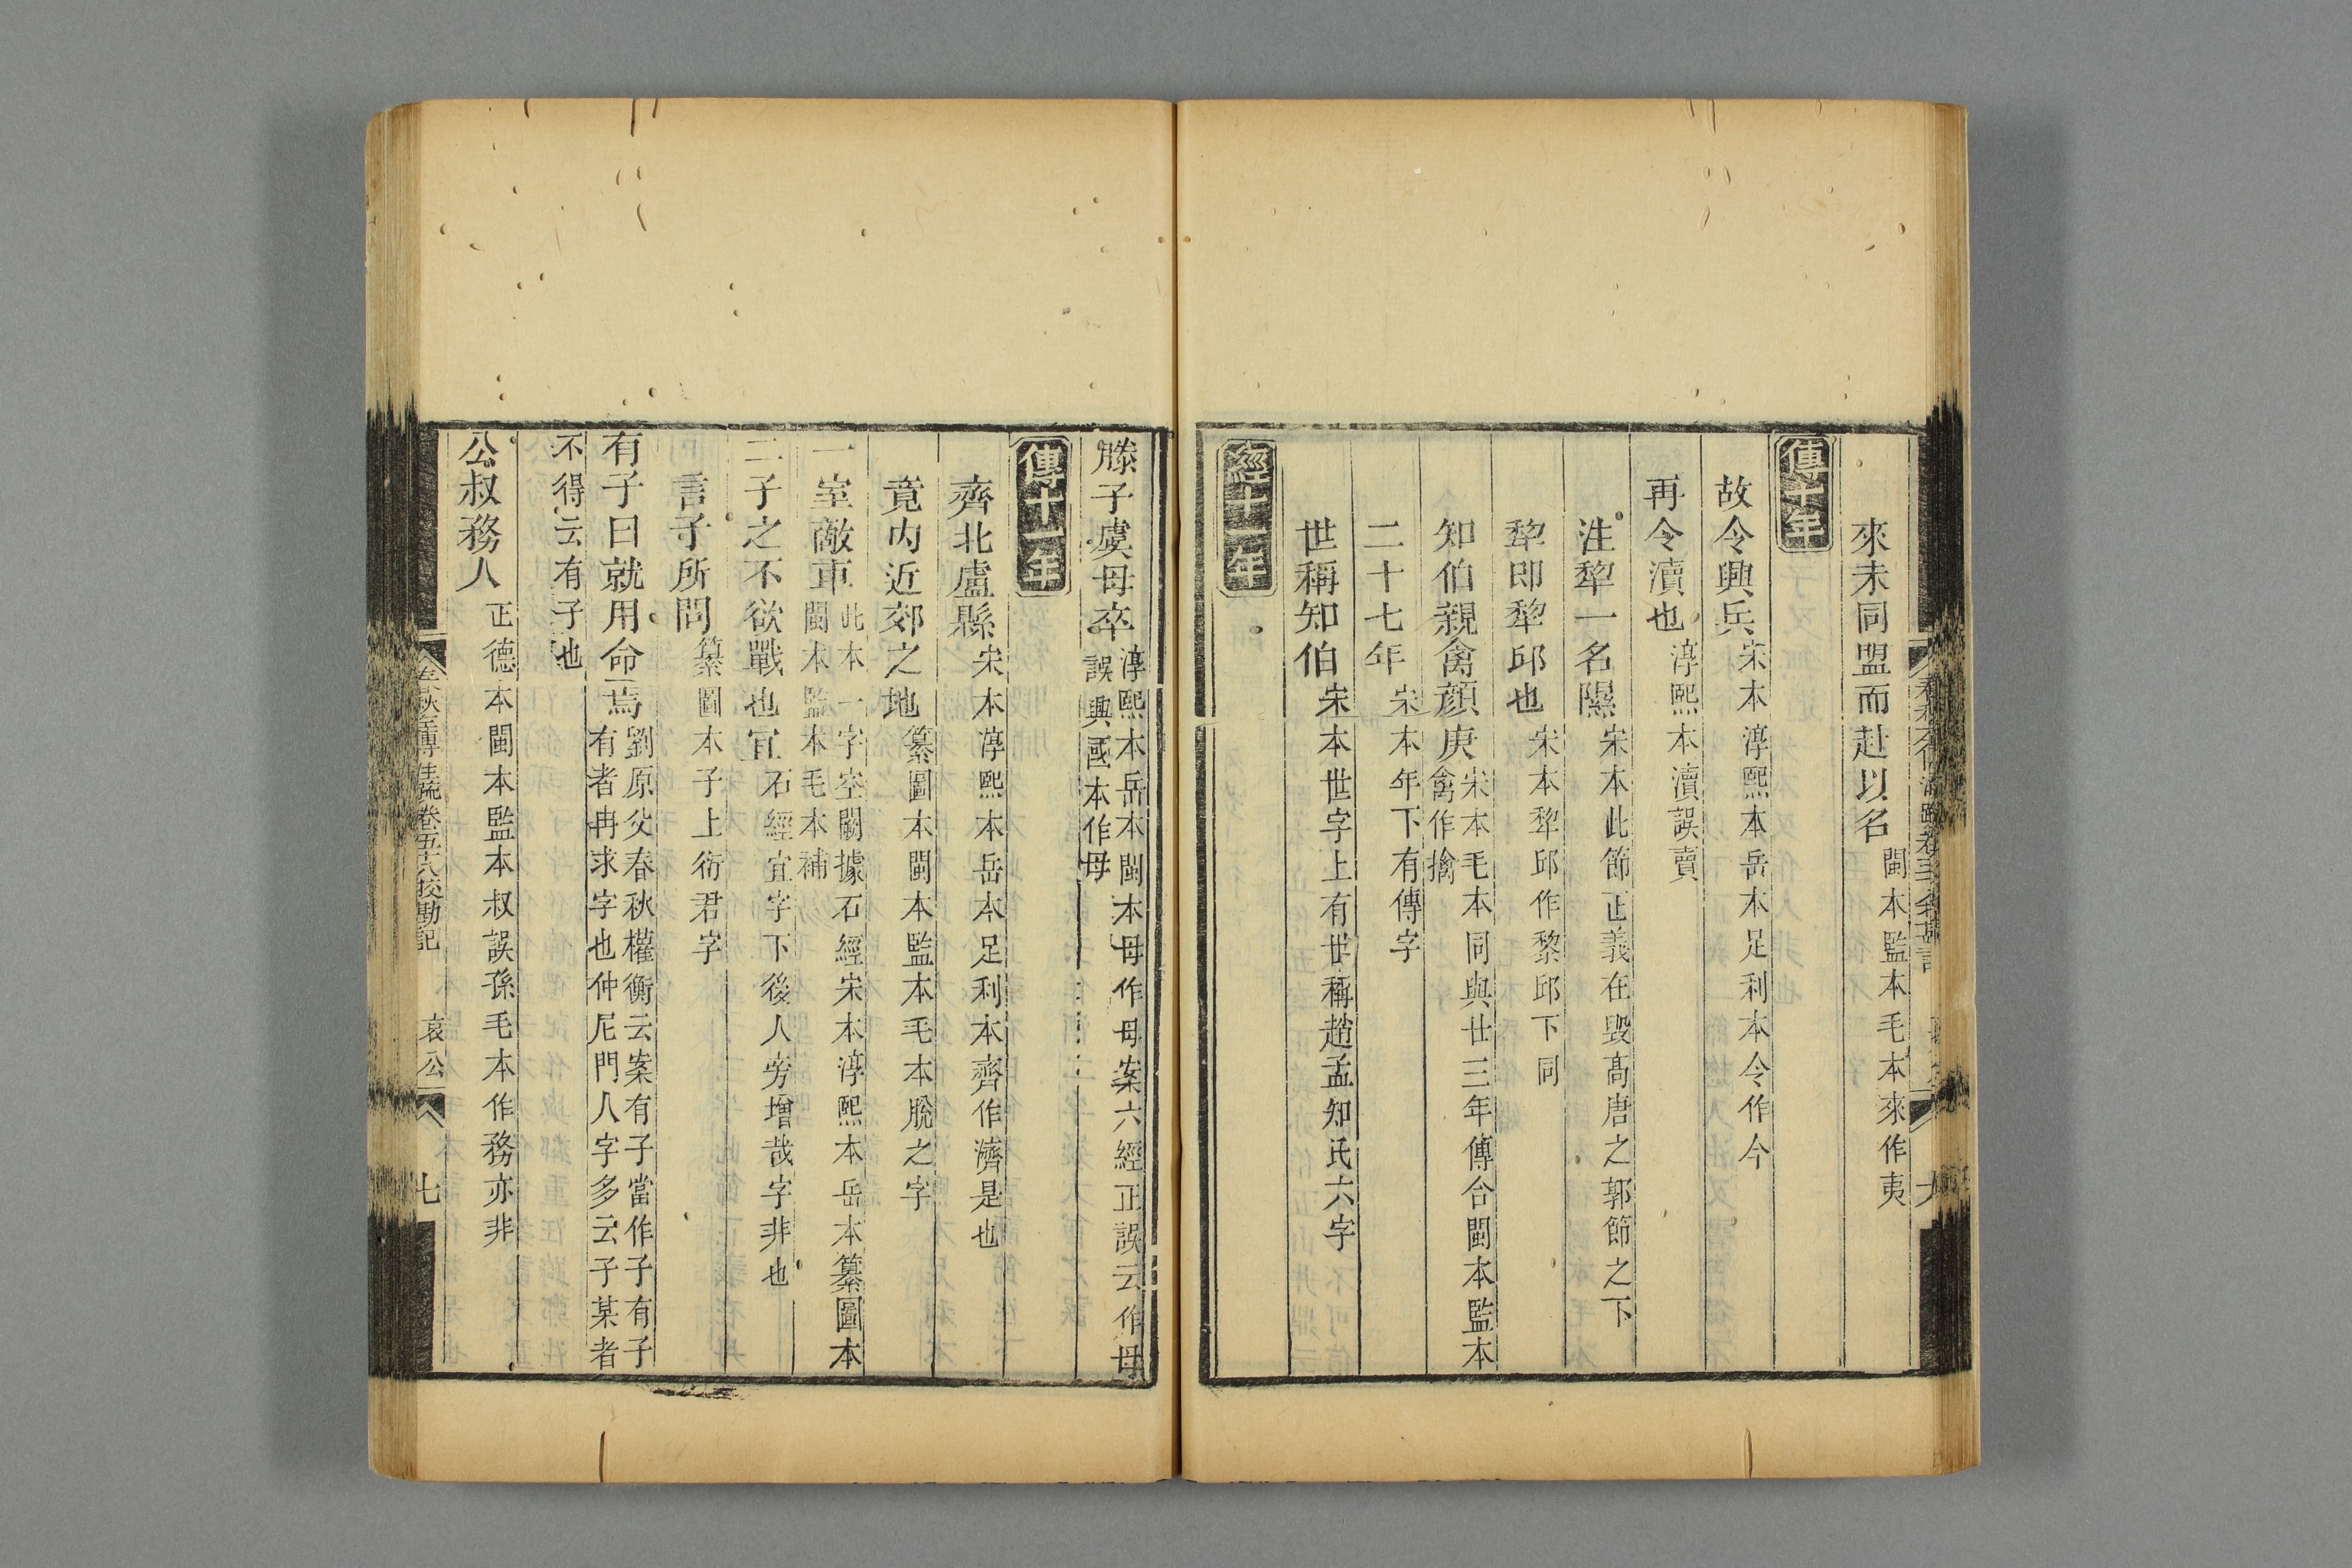 來未同盟而赴以名閩本監本毛本來作夷
傳十年
故令興兵宋本淳熙本岳本足利本令作今
再令瀆也淳熙本瀆誤賣
注犂一名隰宋本此節正義在毀高唐之郭節之下
犂即犂邱也宋本犂邱作黎邱下同
知伯親禽顏庚宋本毛本同與廿三年傳合閩本監本禽作擒
二十七年宋本年下有傳字
世稱知伯宋本世字上有世稱趙孟知氏六字
經十一年
滕子虞母卒淳熙本岳本閩本母作毋案六經正誤云作毋誤興國本作母
傳十一年
齊北盧縣宋本淳熙本岳本足利本齊作濟是也
竟內近郊之地纂圖本閩本監本毛本脫之字
一室敵車此本一字空闕據石經宋本淳熙本岳本纂圖本閩本監本毛本補
二子之不欲戰也宜石經宜字下後人旁增哉字非也
言子所問纂圖本子上衍君字
有子曰就用命焉劉原父春秋權衡云案有子當作子有子有者冉求字也仲尼門人字多云子某者
不得云有子也
公叔務人正德本閩本監本叔誤孫毛本作務亦非
春秋左傳注疏卷五十八校勘記
哀公
七